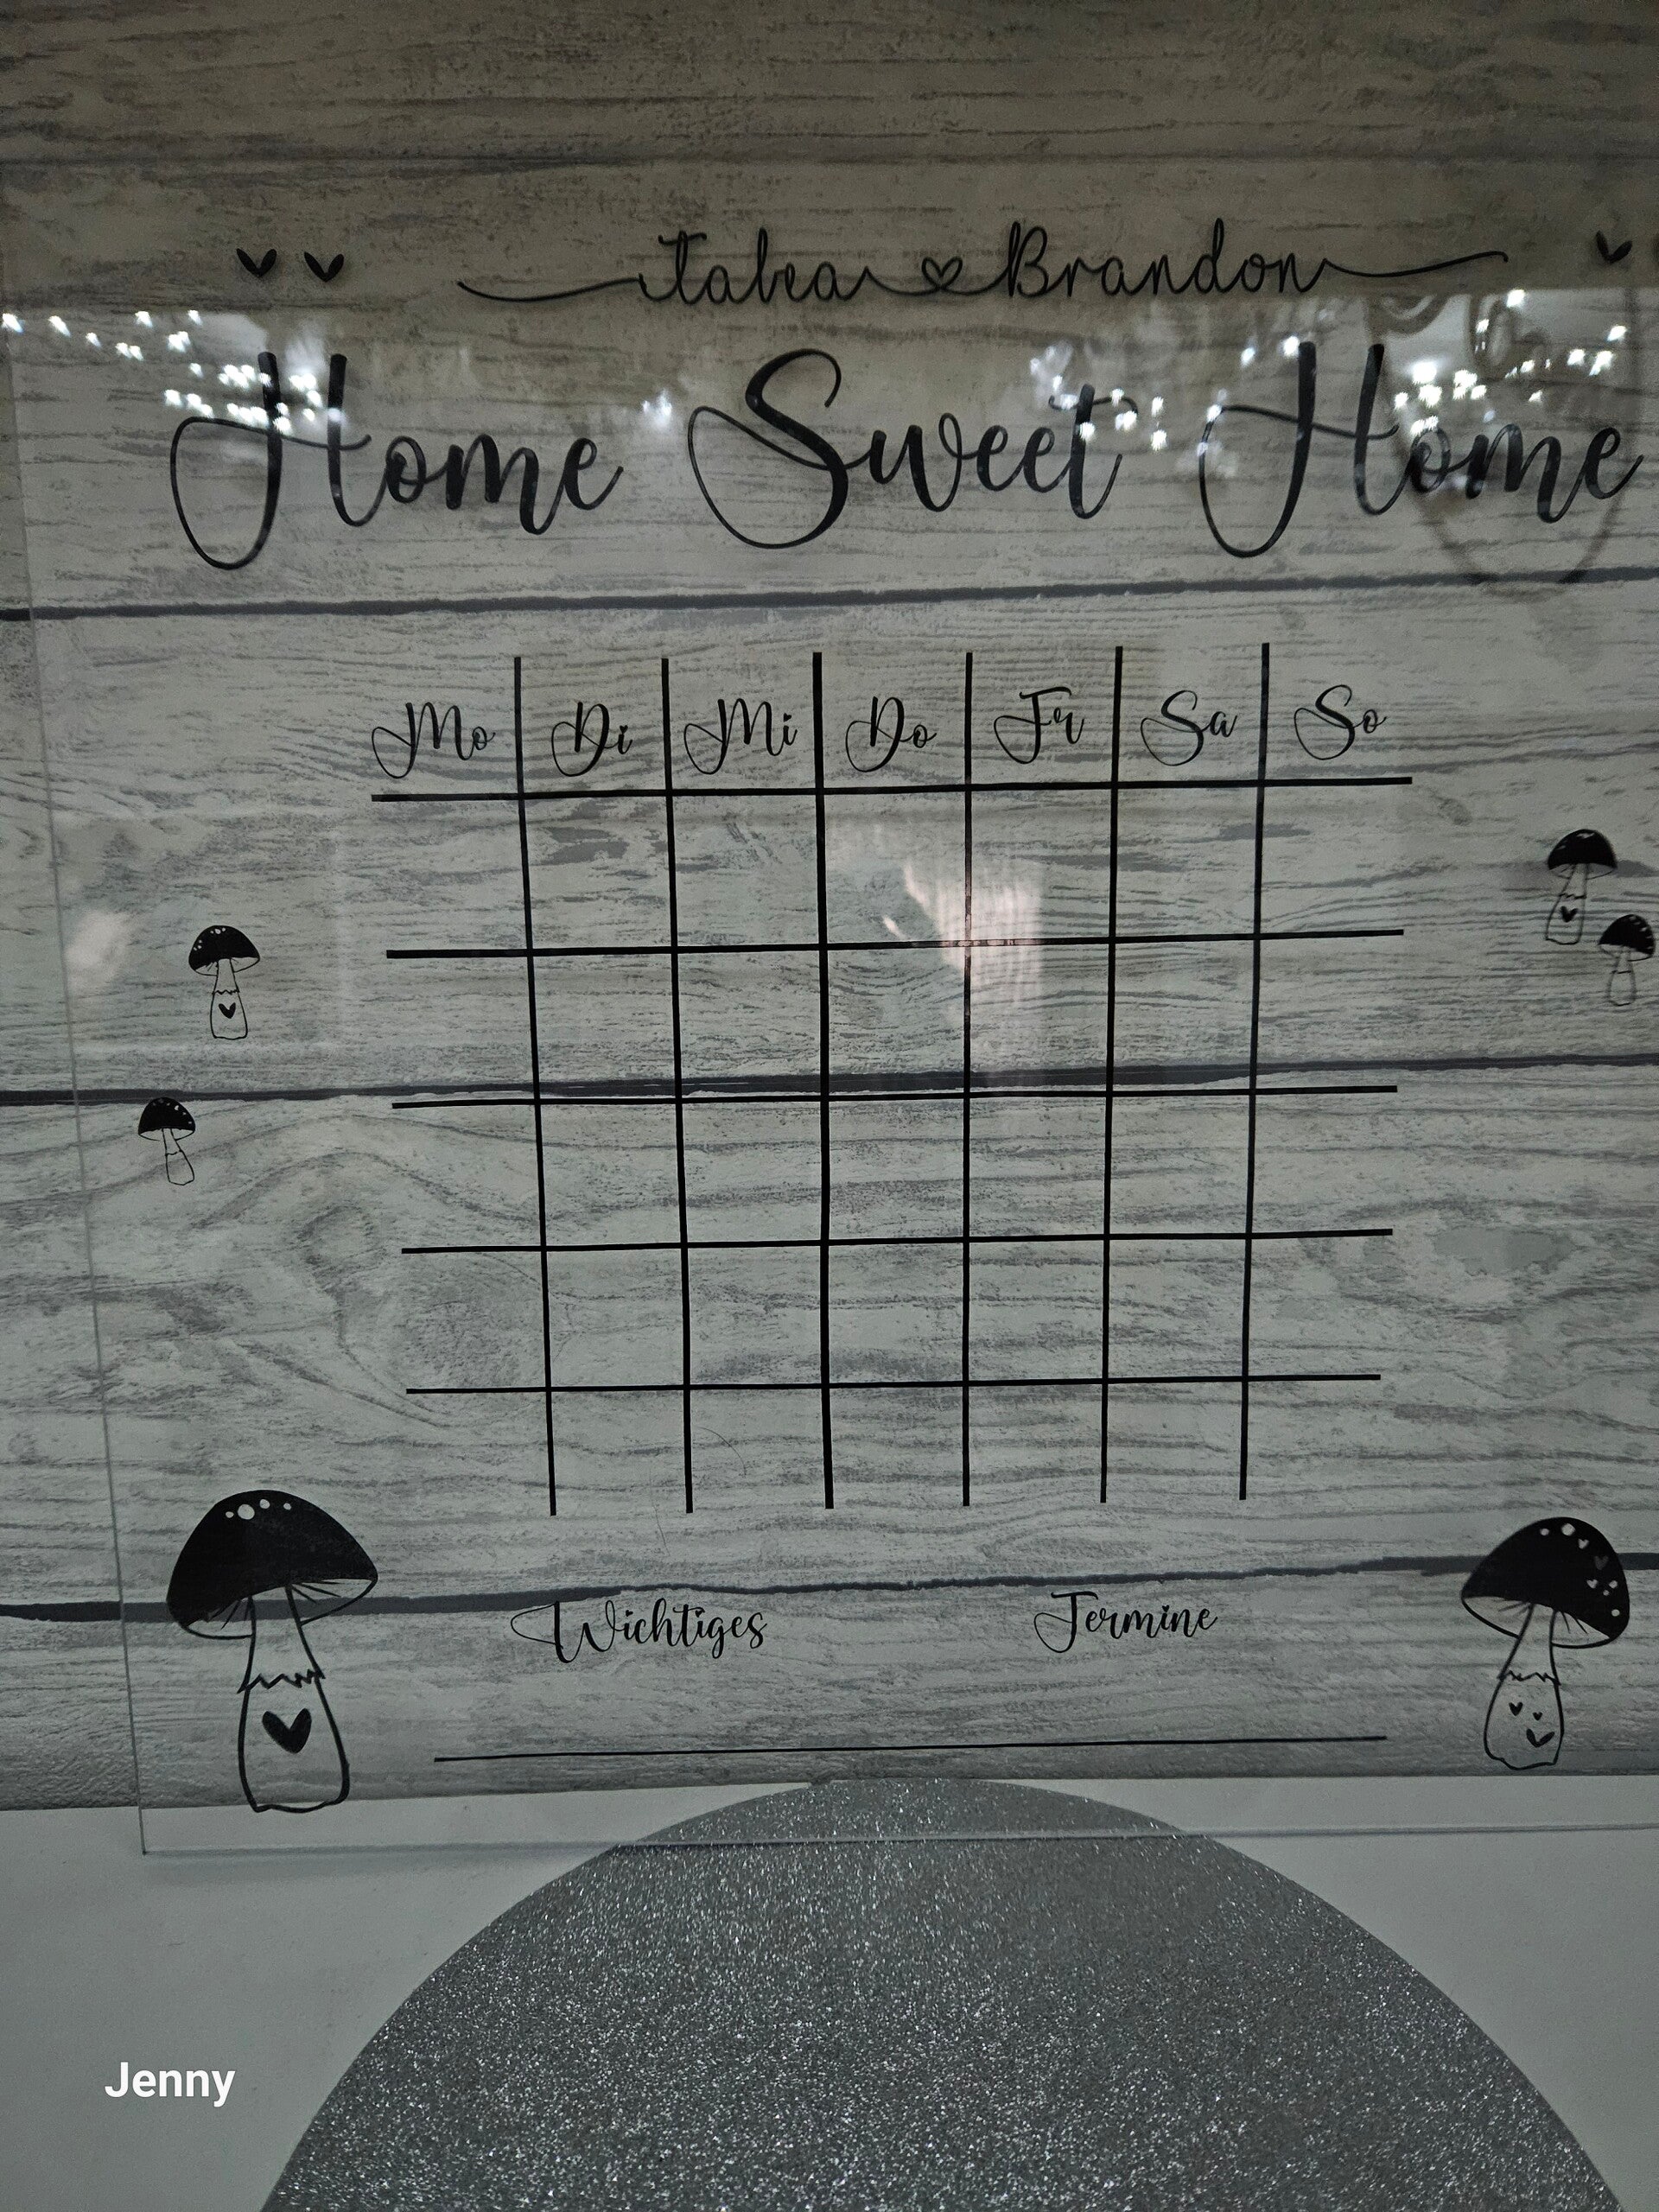 Tabea Brandon
Home Sweet Home
Mo Di Mi Do Fr Sa So
Wichtiges Termine
Jenny